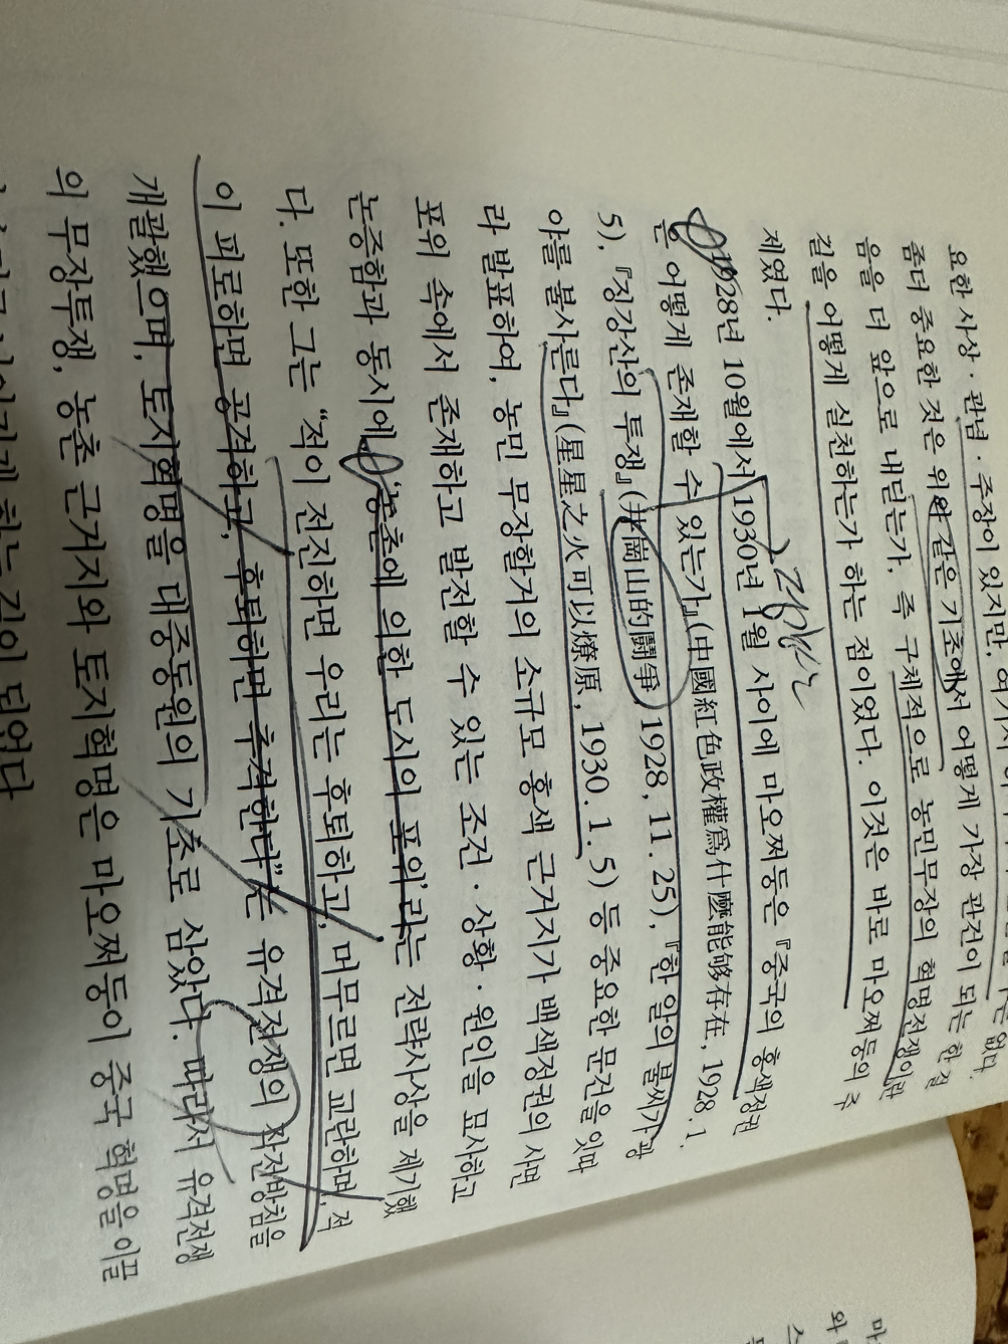 요한 사상·관념·주장이 있지만, 여기서
좀더 중요한 것은 위와 같은 기초에서 어떻게 가장 관건이 되는 한 걸
음을 더 앞으로 내딛는가, 즉 구체적으로 농민무장의 혁명전쟁이란
길을 어떻게 실천하는가 하는 점이었다. 이것은 바로 마오쩌둥의 주
제였다.
1928년 10월에서 1930년 1월 사이에 마오쩌둥은 『중국의 홍색정권
은 어떻게 존재할 수 있는가』(中國紅色政權爲什麽能够存在, 1928. 1.
5), 『징강산의 투쟁』(井崗山的鬪爭, 1928, 11. 25), 『한 알의 불씨가 광
야를 불사른다』(星星之火可以燎原, 1930. 1. 5) 등 중요한 문건을 잇따
라 발표하여, 농민 무장할거의 소규모 홍색 근거지가 백색정권의 사면
포위 속에서 존재하고 발전할 수 있는 조건·상황·원인을 묘사하고
논증함과 동시에 '농촌에 의한 도시의 포위'라는 전략사상을 제기했
다. 또한 그는 “적이 전진하면 우리는 후퇴하고, 머무르면 교란하며, 적
이 피로하면 공격하고, 후퇴하면 추격한다”는 유격전쟁의 작전방침을
개괄했으며, 토지혁명을 대중동원의 기초로 삼았다. 따라서 유격전쟁
의 무장투쟁, 농촌 근거지와 토지혁명은 마오쩌둥이 중국 혁명을 이끌
길이 되었다